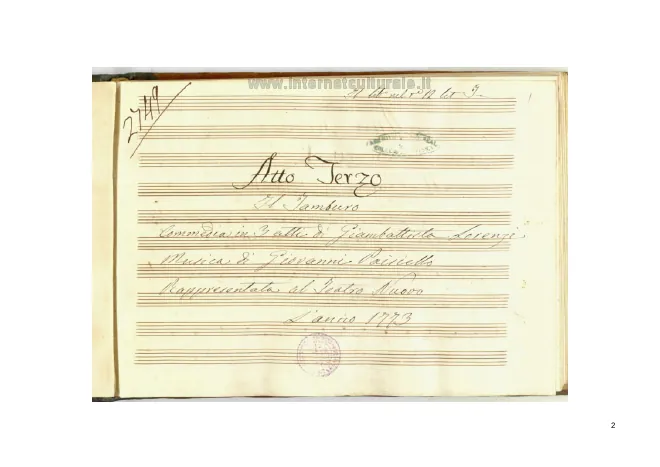 www.internetculturale.it
2749
1
Atto Terzo
Il Tamburo
Commedia in 3 atti di Giambattista Lorenzi
Musica di Giovanni Paisiello
Rappresentata al Teatro Nuovo
L'anno 1773
2